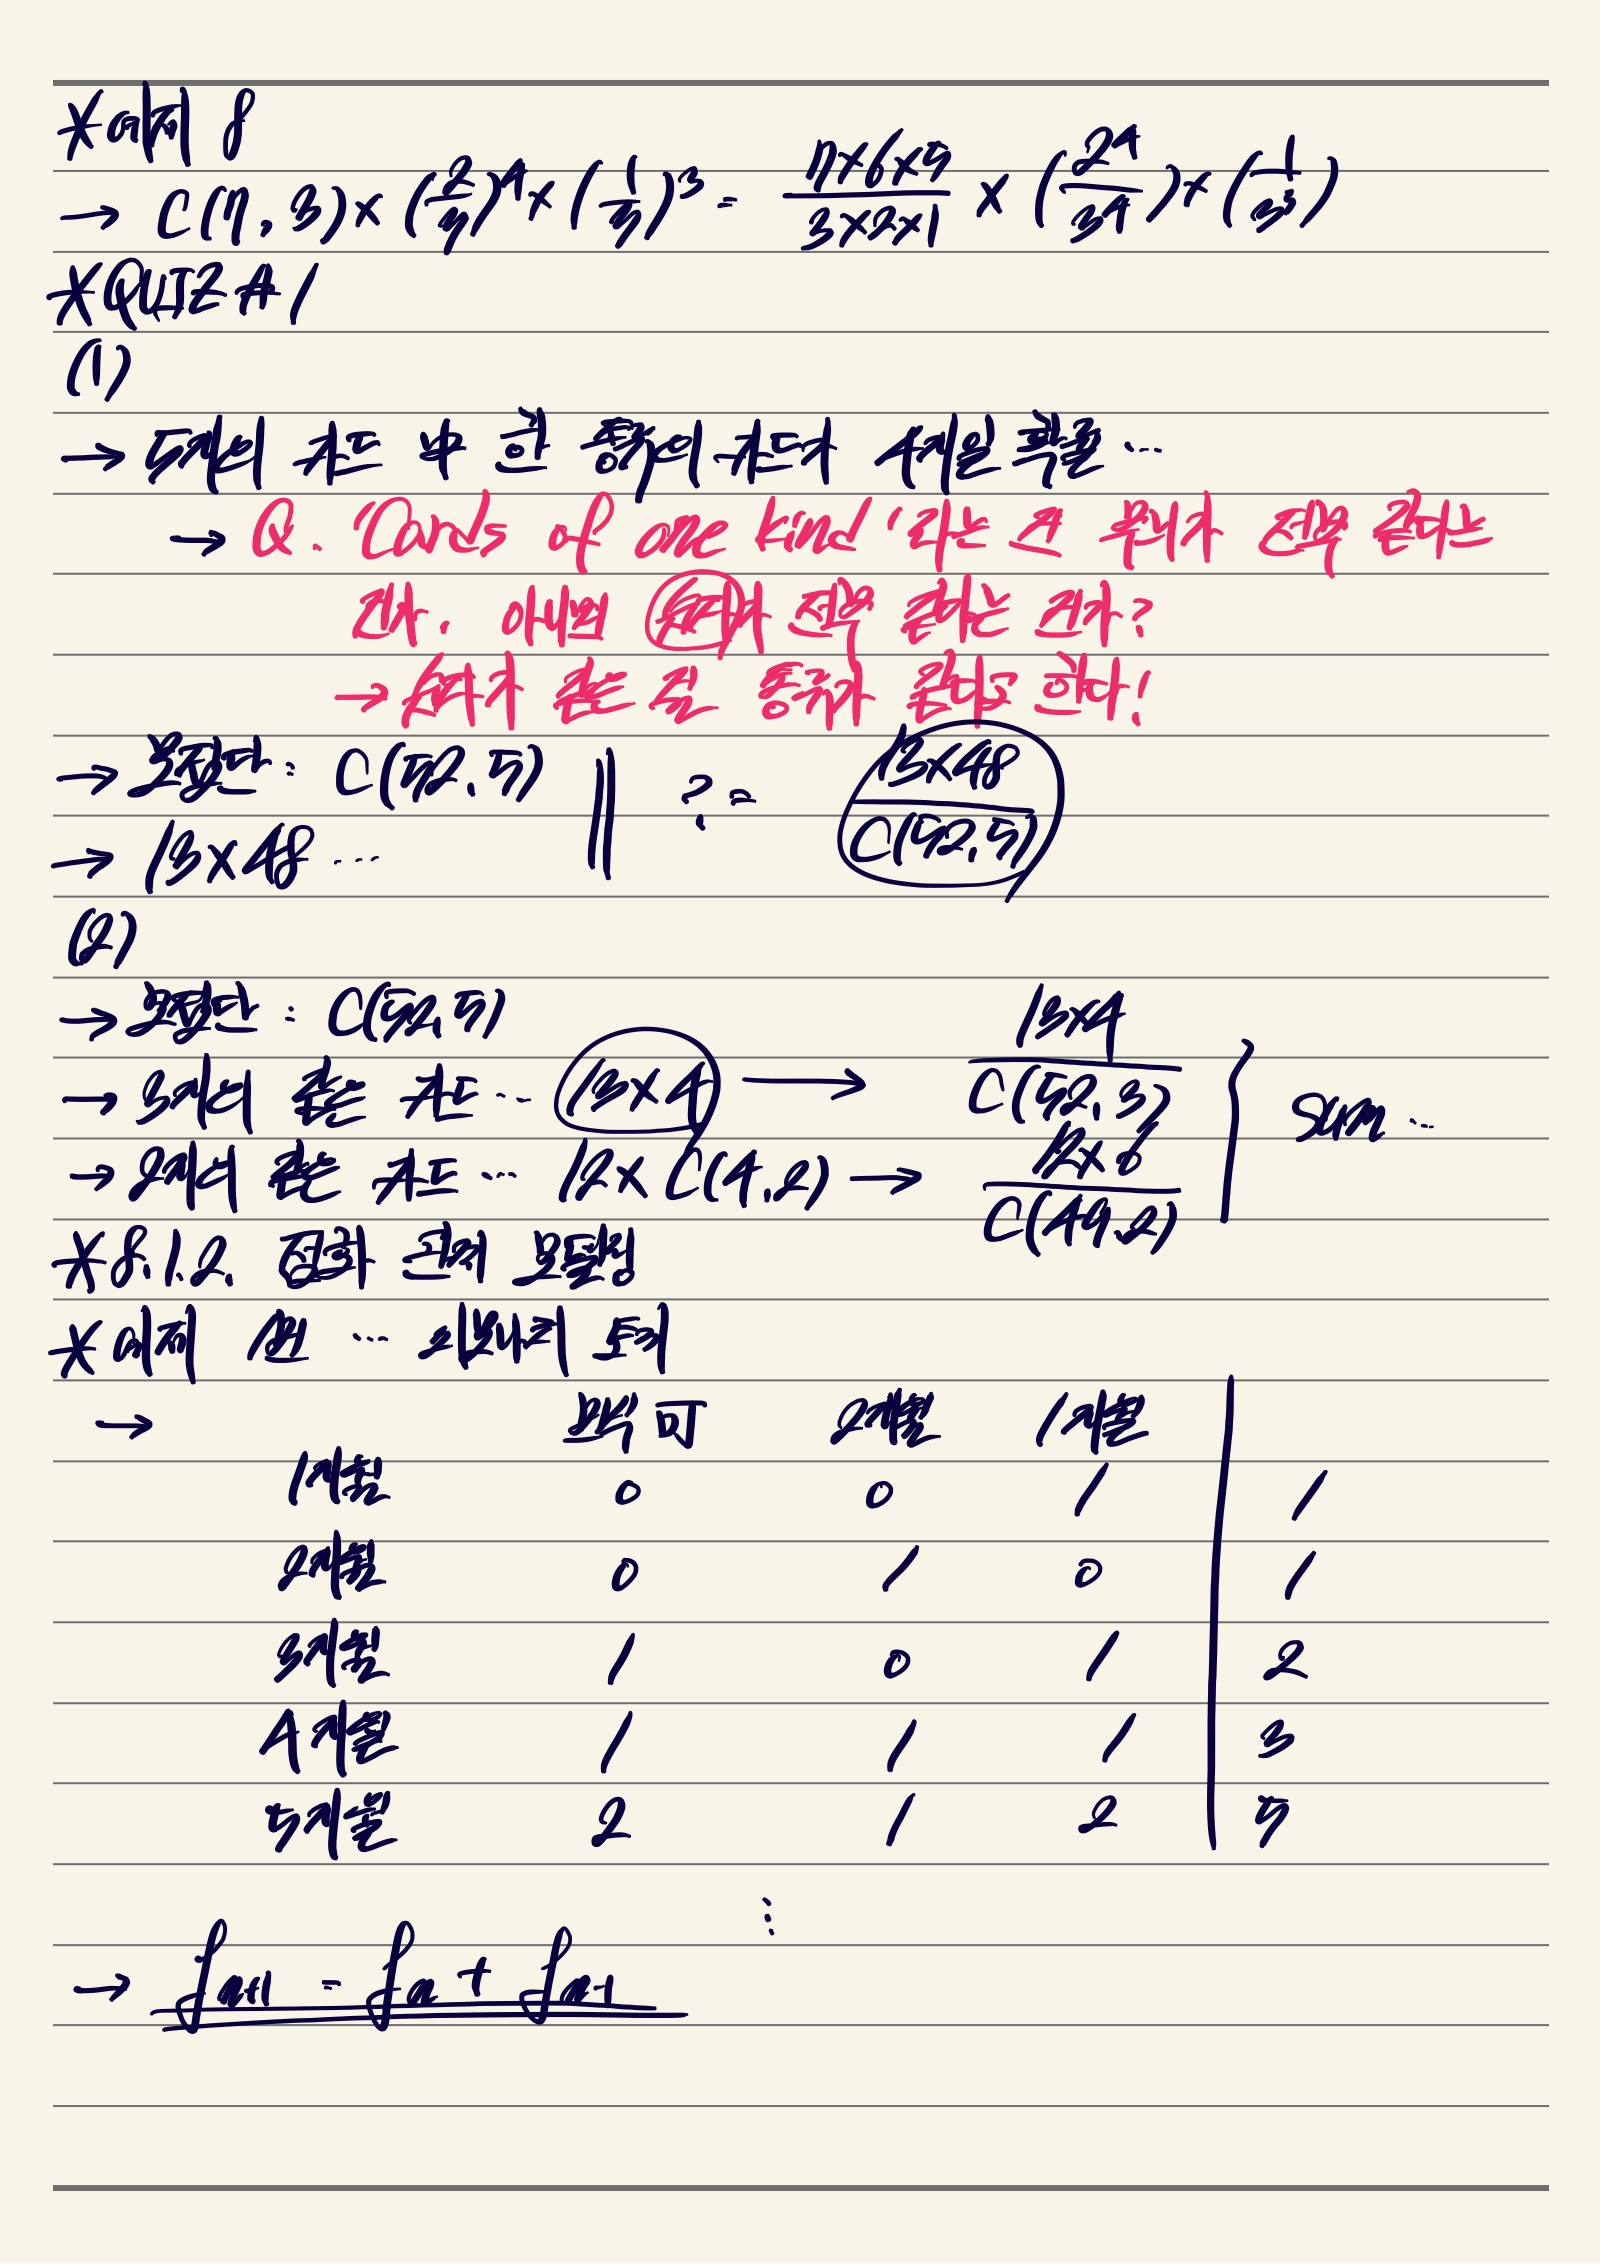 *예제 8
→ C(7, 3)×(2/3)^4×(1/3)^3 = 7×6×5/3×2×1 × (2^4/3^4)×(1/3^3)
*QUIZ A1
(1)
→ 5개의 카드 中 한 종류의 카드가 4개일 확률…
→ Q. 'Cards of one kind'라는 건 무늬가 전부 같다는
건가. 아니면 숫자가 전부 같다는 건가?
→ 숫자가 같은 걸 종류가 같다고 한다!
→ 모집단: C(52, 5) || ? = 13×48/C(52, 5)
→ 13×48 …
(2)
→ 모집단: C(52, 5)
→ 3개의 같은 카드… 13×4 → 13×4/C(52, 3)
→ 2개의 같은 카드… 12×C(4, 2) → 12×6/C(49, 2) } Sum…
*8.1.2. 점화 관계 모델링
*예제 1번 … 피보나치 토끼
→ 번식 可 2개월 1개월
1개월 0 0 1 | 1
2개월 0 1 0 | 1
3개월 1 0 1 | 2
4개월 1 1 1 | 3
5개월 2 1 2 | 5
⋮
→ f_{n+1} = f_n + f_{n-1}